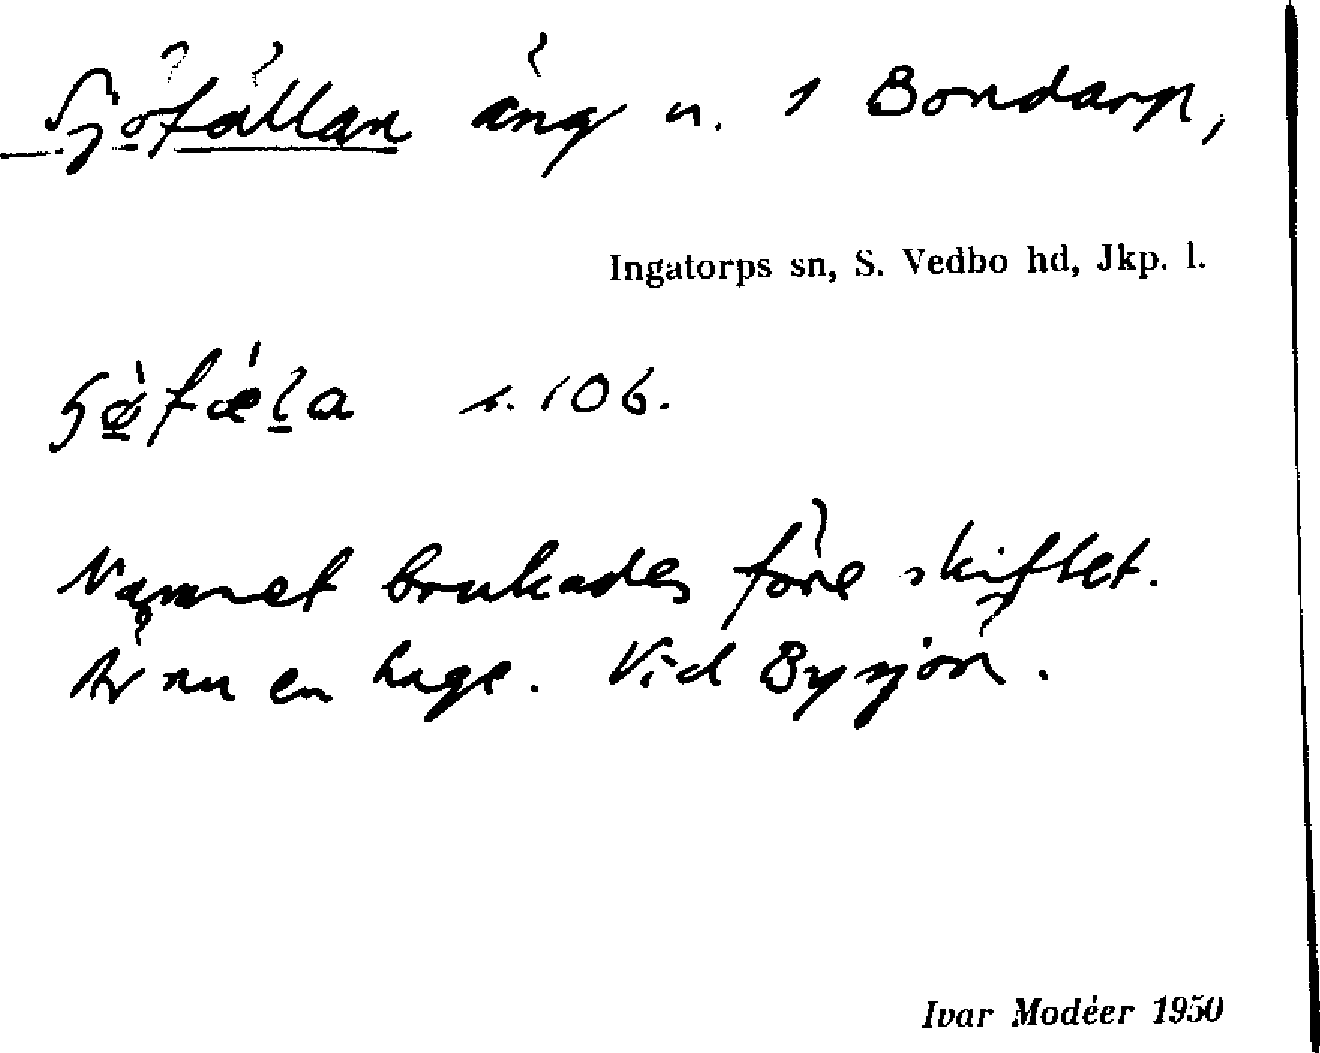 Sjöfällan äng n. 1 Bondarp,
Ingatorps sn, S. Vedbo hd, Jkp. l.
s. 106.
Namnet brukades före skiftet.
Är nu en hage. Vid Bysjön.
Ivar Modéer 1950